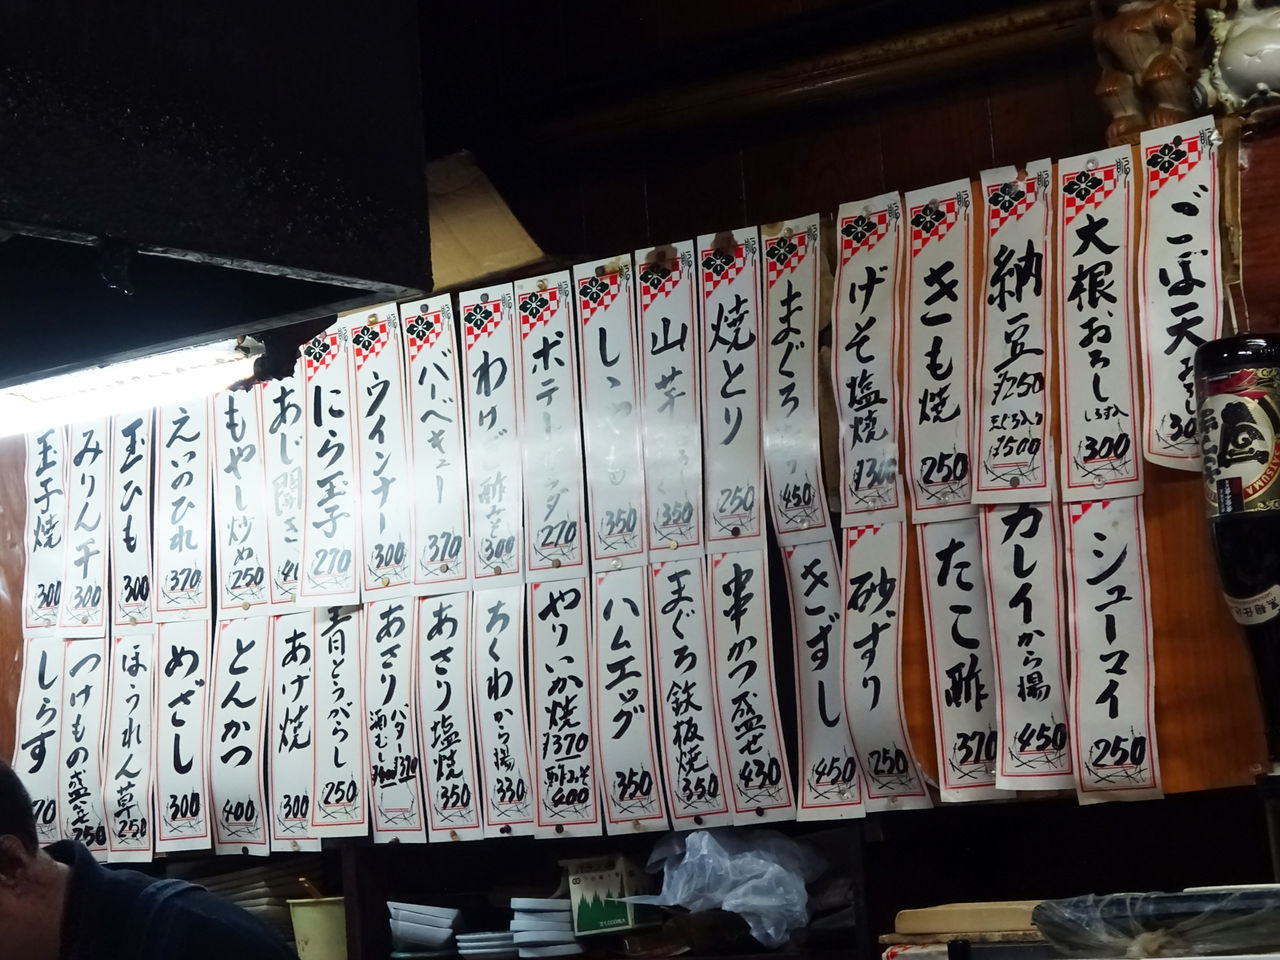 ごぼ天
大根おろし
しらす入
300
納豆
250
500
きも焼
250
げそ塩焼
まぐろ
450
焼とり
250
山芋
350
350
ポテ
270
わけぎ酢
300
バーベキュー
370
ウインナー
300
にら玉子
270
あじ開き
もやし炒め
250
えいのひれ
370
玉ひも
300
みりん干
300
玉子焼
300
シューマイ
250
カレイから揚
450
たこ酢
370
砂ずり
250
きずし
450
串かつ盛合せ
430
まぐろ鉄板焼
350
ハムエッグ
350
やりいか焼
370
酢みそ
400
ちくわから揚
330
あさり塩焼
350
あさり
バター
370
酒むし
青とうがらし
250
あげ焼
300
とんかつ
400
めざし
300
ほうれん草
250
つけもの盛合
250
しらす
70